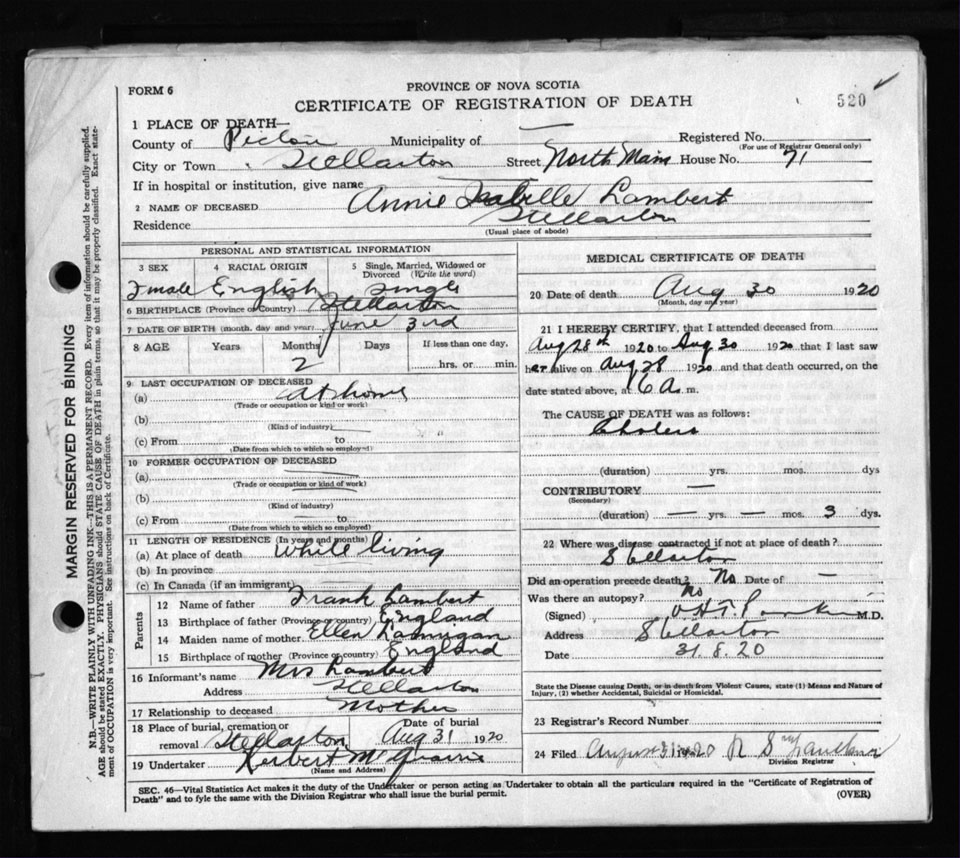 FORM 6
PROVINCE OF NOVA SCOTIA
CERTIFICATE OF REGISTRATION OF DEATH
520
1 PLACE OF DEATH—
County of Pictou Municipality of — Registered No.
(For use of Registrar General only)
City or Town Stellarton Street North Main House No. 71
If in hospital or institution, give name
2 NAME OF DECEASED Annie Isabelle Lambert
Residence Stellarton
(Usual place of abode)
PERSONAL AND STATISTICAL INFORMATION
3 SEX 4 RACIAL ORIGIN 5 Single, Married, Widowed or Divorced (Write the word)
Female English Single
6 BIRTHPLACE (Province or Country) Stellarton
7 DATE OF BIRTH (month, day and year) June 3rd
8 AGE Years Months Days If less than one day,
2 hrs. or min.
9 LAST OCCUPATION OF DECEASED
(a) at home
(Trade or occupation or kind of work)
(b)
(Kind of industry)
(c) From to
(Date from which to which so employed)
10 FORMER OCCUPATION OF DECEASED
(a)
(Trade or occupation or kind of work)
(b)
(Kind of industry)
(c) From — to
(Date from which to which so employed)
11 LENGTH OF RESIDENCE (In years and months)
(a) At place of death While living
(b) In province
(c) In Canada (if an immigrant)
Parents
12 Name of father Frank Lambert
13 Birthplace of father (Province or country) England
14 Maiden name of mother Ellen
15 Birthplace of mother (Province or country) England
16 Informant's name Mrs Lambert
Address Stellarton
17 Relationship to deceased Mother
18 Place of burial, cremation or removal Stellarton Date of burial Aug 31 1920
19 Undertaker Herbert
(Name and Address)
MEDICAL CERTIFICATE OF DEATH
20 Date of death Aug 30 1920
(Month, day and year)
21 I HEREBY CERTIFY, that I attended deceased from
Aug 28th 1920 to Aug 30 1920 that I last saw
her alive on Aug 28 1920 and that death occurred, on the
date stated above, at 6 A. m.
The CAUSE OF DEATH was as follows:
Cholera
(duration) yrs. mos. dys
CONTRIBUTORY —
(Secondary)
(duration) — yrs. — mos. 3 dys.
22 Where was disease contracted if not at place of death?
Stellarton
Did an operation precede death? No Date of —
Was there an autopsy? No
(Signed) M.D.
Address Stellarton
Date 31.8.20
State the Disease causing Death, or in death from Violent Causes, state (1) Means and Nature of
Injury, (2) whether Accidental, Suicidal or Homicidal.
23 Registrar's Record Number
24 Filed August 31 1920
Division Registrar
SEC. 46—Vital Statistics Act makes it the duty of the Undertaker or person acting as Undertaker to obtain all the particulars required in the "Certificate of Registration of
Death" and to fyle the same with the Division Registrar who shall issue the burial permit. (OVER)
MARGIN RESERVED FOR BINDING
N.B.—WRITE PLAINLY WITH UNFADING INK—THIS IS A PERMANENT RECORD. Every item of information should be carefully supplied.
AGE should be stated EXACTLY. PHYSICIANS should STATE CAUSE OF DEATH in plain terms, so that it may be properly classified. Exact state-
ment of OCCUPATION is very important. See instructions on back of Certificate.